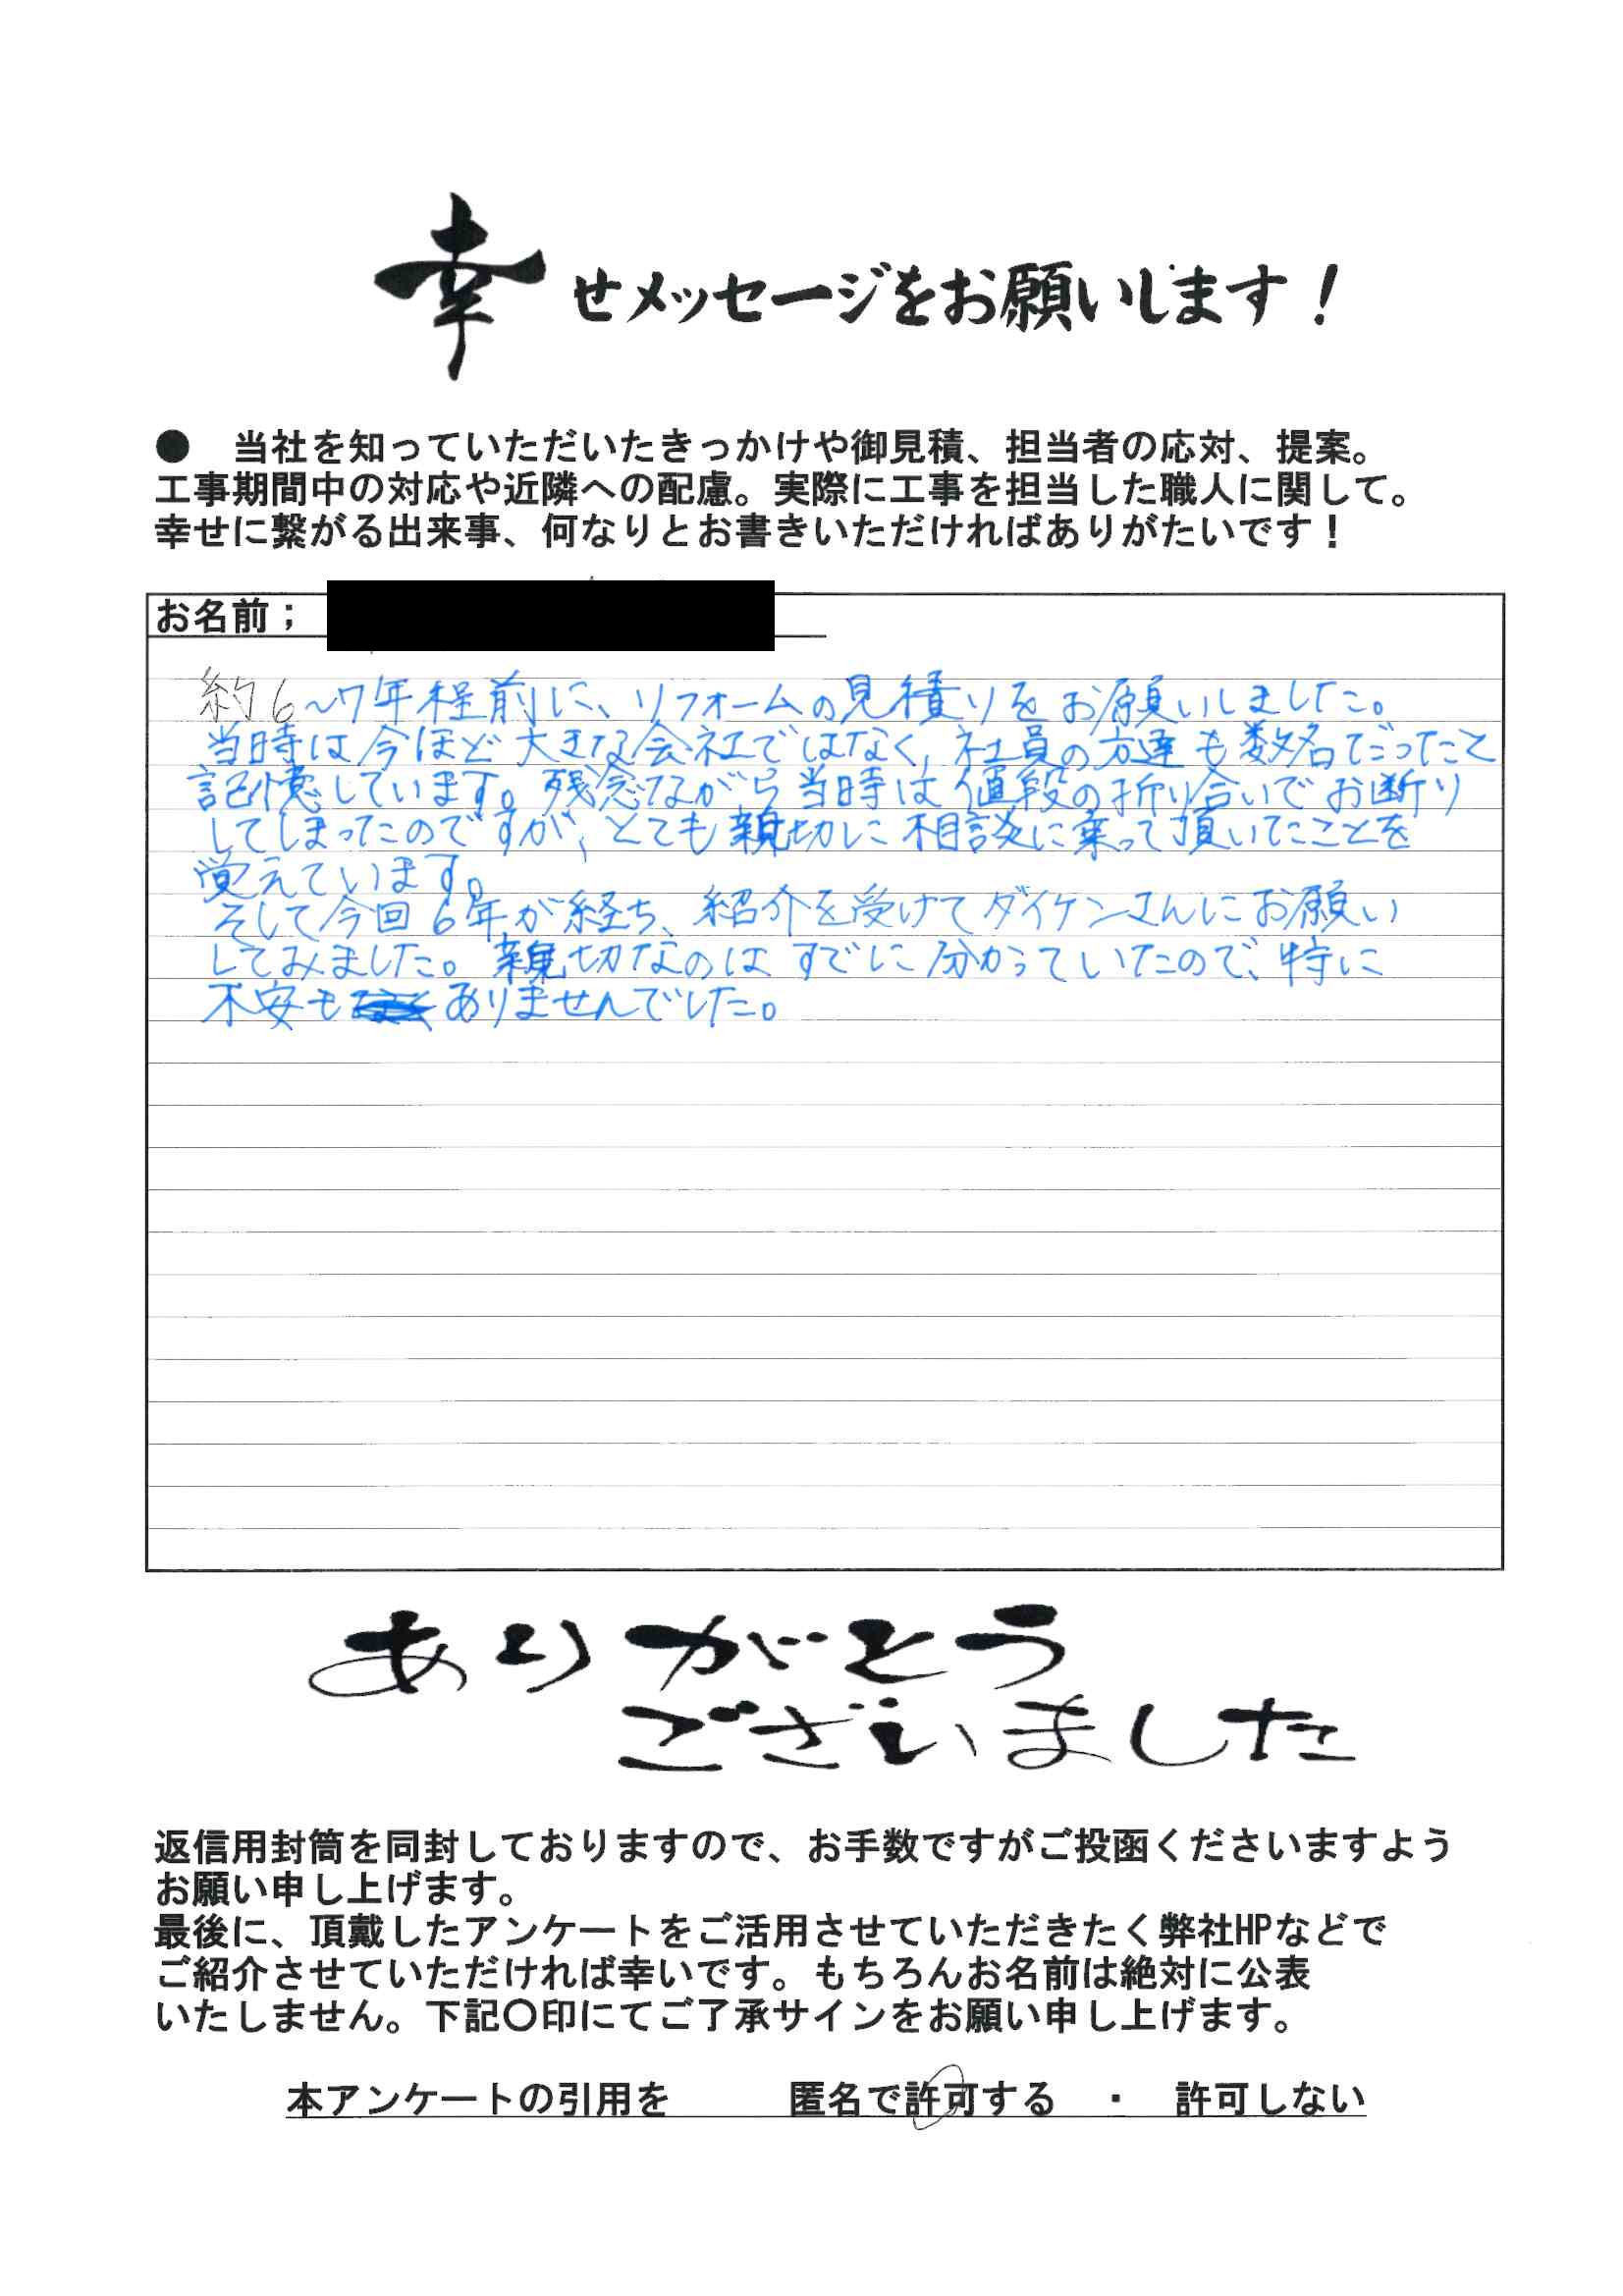 幸せメッセージをお願いします！
●　当社を知っていただいたきっかけや御見積、担当者の応対、提案。
工事期間中の対応や近隣への配慮。実際に工事を担当した職人に関して。
幸せに繋がる出来事、何なりとお書きいただければありがたいです！
お名前；
約6～7年程前に、リフォームの見積りをお願いしました。
当時は今ほど大きな会社ではなく、社員の方達も数名だったと
記憶しています。残念ながら当時は値段の折り合いでお断り
してしまったのですが、とても親切に相談に乗って頂いたことを
覚えています。
そして今回6年が経ち、紹介を受けてダイケンさんにお願い
してみました。親切なのはすでに分かっていたので、特に
不安もありませんでした。
ありがとう
ございました
返信用封筒を同封しておりますので、お手数ですがご投函くださいますよう
お願い申し上げます。
最後に、頂戴したアンケートをご活用させていただきたく弊社HPなどで
ご紹介させていただければ幸いです。もちろんお名前は絶対に公表
いたしません。下記〇印にてご了承サインをお願い申し上げます。
本アンケートの引用を　匿名で許可する　・　許可しない